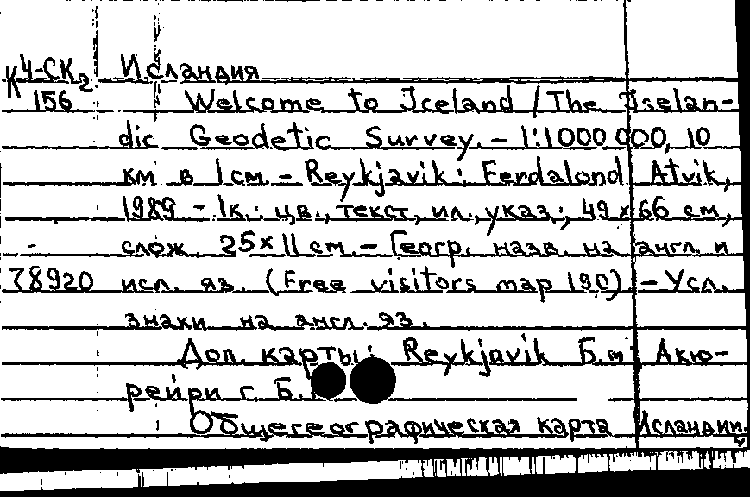 К4-СК2 Исландия
156 Welcome to Iceland / The Iselan-
dic Geodetic Survey. – 1:1000 000, 10
км в 1 см. – Reykjavik: Ferdaland Atvik,
1989 – 1к.: цв., текст, ил., указ.; 49 х 66 см,
слож. 25 х 11 см. – Геогр. назв. на англ. и
78920 исл. яз. (Free visitors map 190) – Усл.
знаки на англ. яз.
Доп. карты: Reykjavik Б.м; Акю-
рейри г. Б.
Общегеографическая карта Исландии.